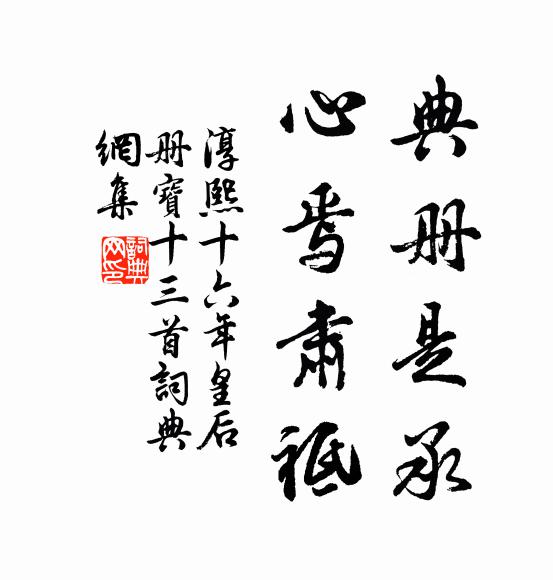 典册是承
心焉肅祗
淳熙十六年皇后
册寶十三首詞典
網集
詞典網印